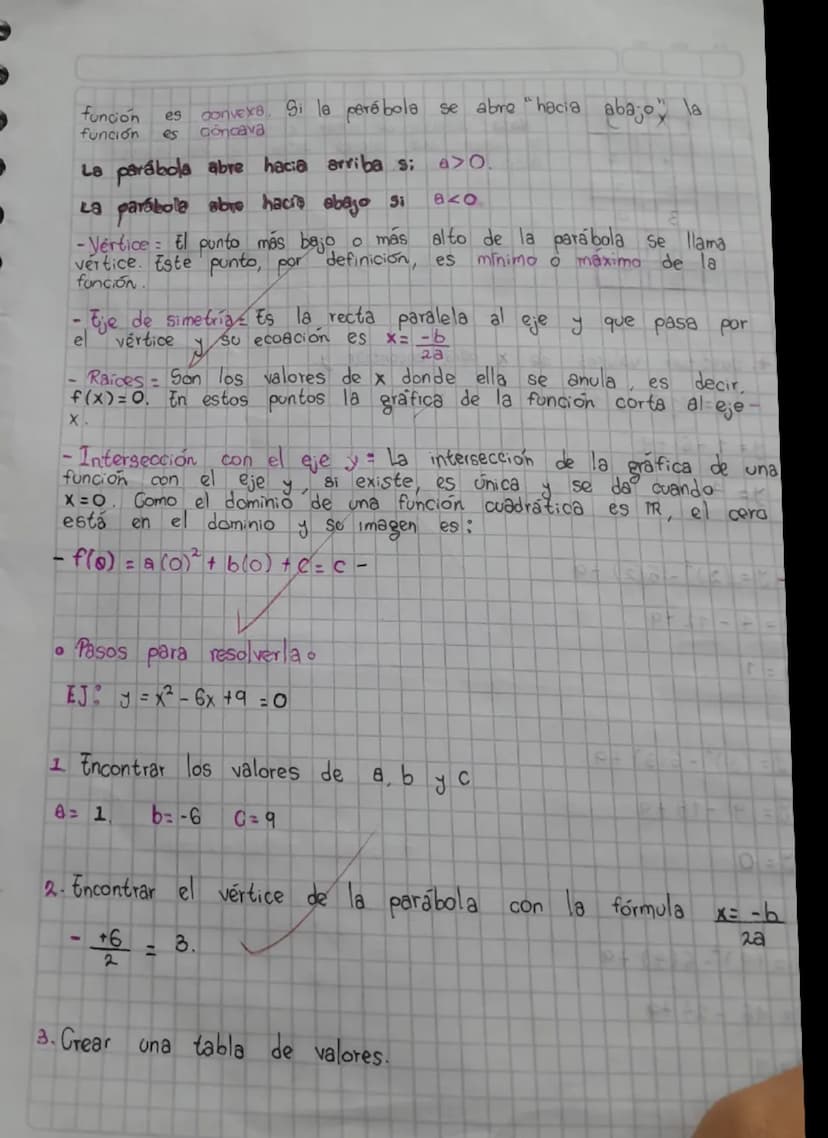 función es convexa. Si la parábola se abre "hacia abajo", la
función es cóncava
La parábola abre hacia arriba si a>0.
La parábola abre hacia abajo si a<0
- Vértice = El punto más bajo o más alto de la parábola se llama
vértice. Este punto, por definición, es mínimo o máximo de la
función.
- Eje de simetría = Es la recta paralela al eje y que pasa por
el vértice y su ecoación es x = -b/2a
- Raíces = Son los valores de x donde ella se anula, es decir,
f(x)=0. En estos puntos la gráfica de la función corta al eje-
x.
- Intersección con el eje y = La intersección de la gráfica de una
función con el eje y, si existe, es única y se da cuando
x=0. Como el dominio de una función cuadrática es IR, el cero
está en el dominio y su imagen es:
- f(0) = a(0)² + b(0) + c = c -
• Pasos para resolverla •
EJ: y = x² - 6x + 9 = 0
1 Encontrar los valores de a, b y c
a = 1. b = -6 c = 9
2. Encontrar el vértice de la parábola con la fórmula x = -b/2a
- +6/2 = 3.
3. Crear una tabla de valores.